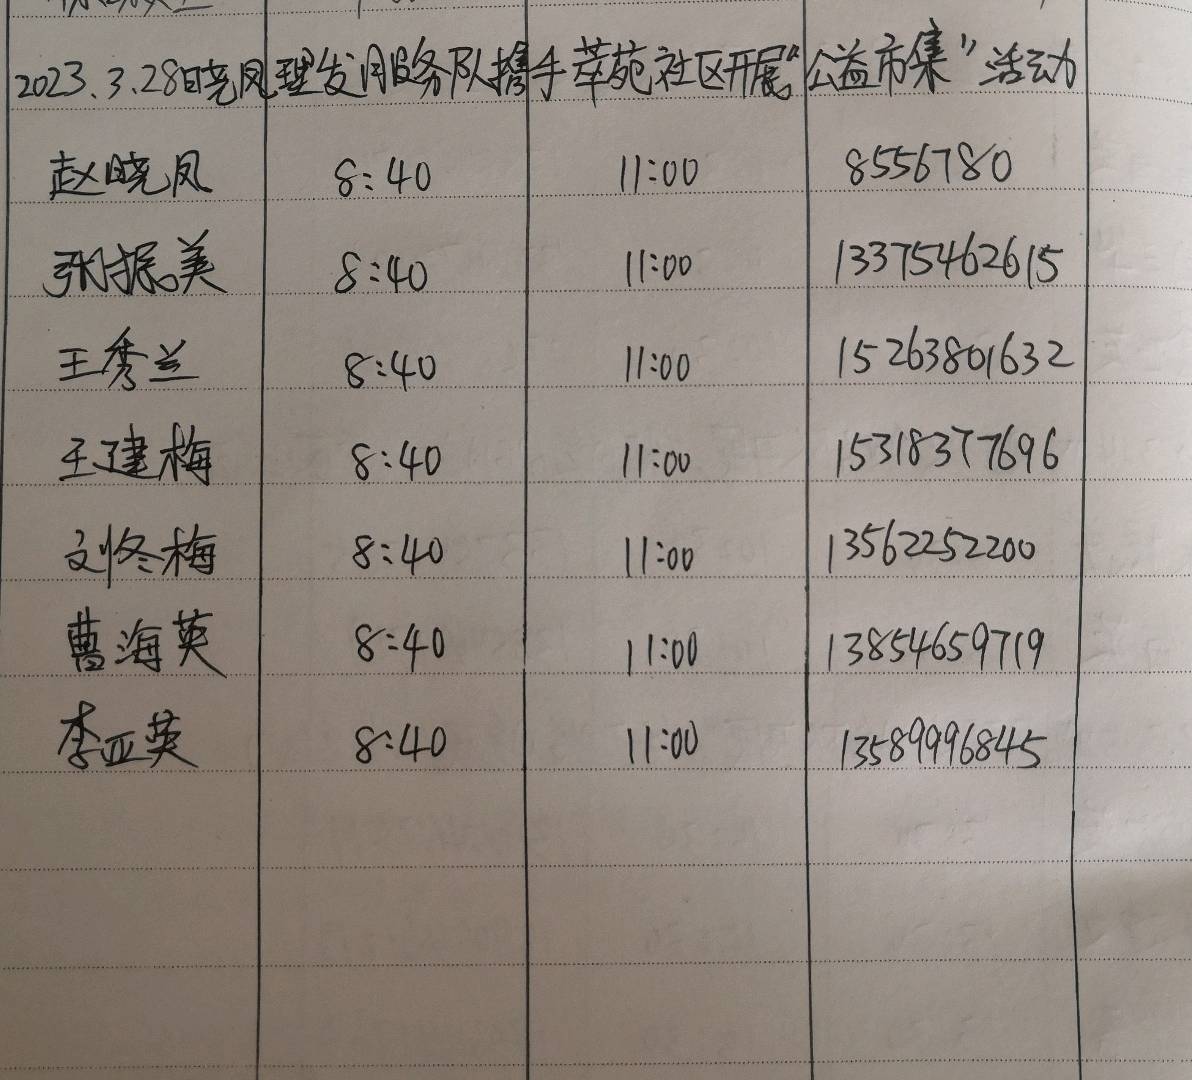 2023.3.28日晓凤理发服务队携手萃苑社区开展“公益市集”活动
赵晓凤 8:40 11:00 8556780
张振美 8:40 11:00 13375462615
王秀兰 8:40 11:00 15263801632
王建梅 8:40 11:00 15318377696
刘冬梅 8:40 11:00 13562252200
曹海英 8:40 11:00 13854659719
李亚英 8:40 11:00 13589996845